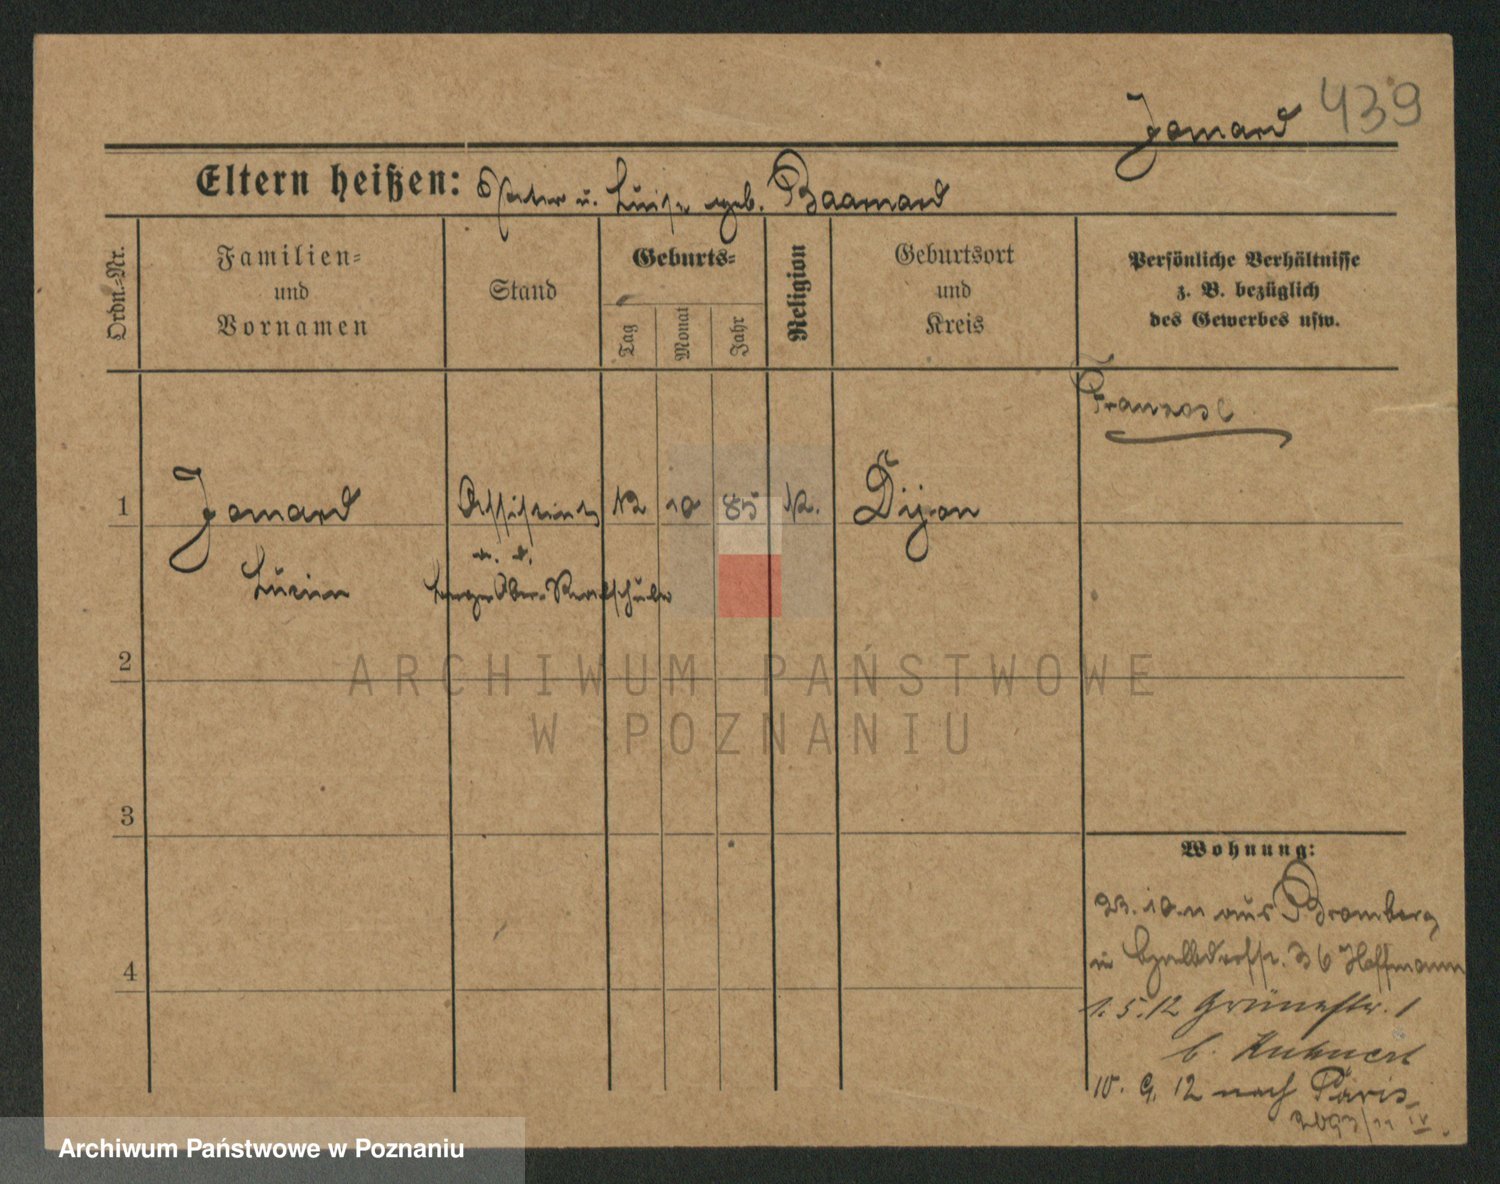 439
Jomard
Eltern heißen: Peter u. Luise geb. Baamard
Ordn.-Nr.
Familien-
und
Vornamen
Stand
Geburts-
Tag
Monat
Jahr
Religion
Geburtsort
und
Kreis
Persönliche Verhältnisse
z. B. bezüglich
des Gewerbes usw.
Franzose
1 Jomard Assistent 12 10 85 K. Dijon
a. d.
Lucien Berger Ober-Realschule
2
ARCHIWUM PAŃSTWOWE
W POZNANIU
3
Wohnung:
23. 10. 11 aus Bromberg
36 Hoffmann
4
1. 5. 12 Grünestr. 1
b. Kuhnert
10. 9. 12 nach Paris
Archiwum Państwowe w Poznaniu